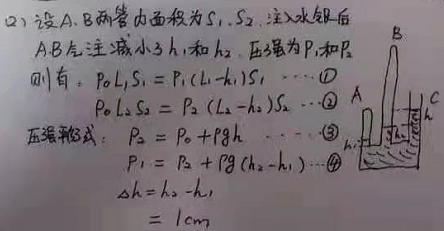 (2) 设A.B两管内面积为S₁.S₂.注入水银后
A.B气注减小了h₁和h₂.压强为P₁和P₂
则有: P₀L₁S₁ = P₁(L₁-h₁)S₁ ……①
P₀L₂S₂ = P₂(L₂-h₂)S₂ ……②
压强 式: P₂ = P₀ + ρgh ……③
P₁ = P₂ + ρg(h₂-h₁) …④
Δh = h₂ - h₁
= 1cm
B
A
C
h
h₁
h₂